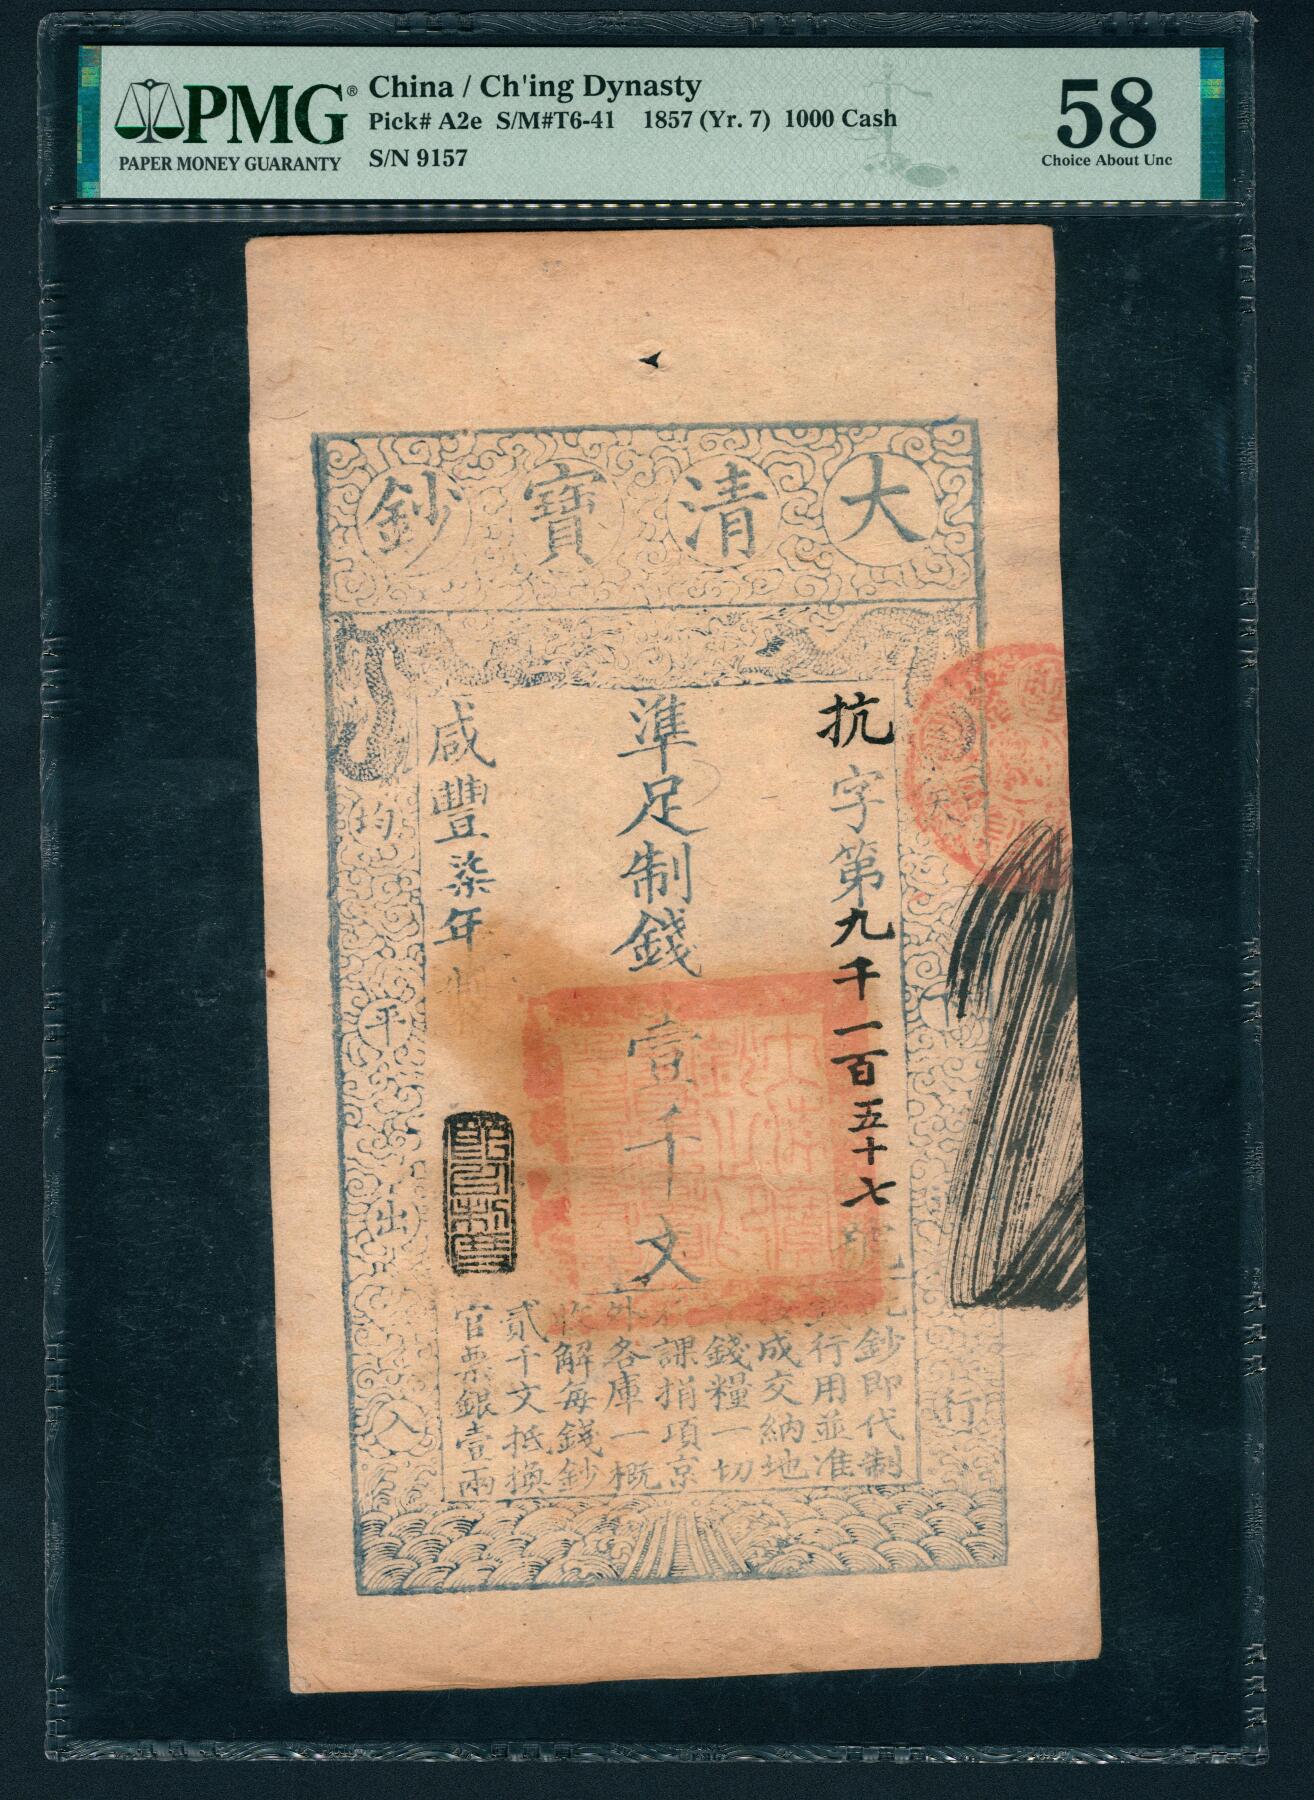 PMG®
PAPER MONEY GUARANTY
China / Ch'ing Dynasty
Pick# A2e S/M#T6-41 1857 (Yr. 7) 1000 Cash
S/N 9157
58
Choice About Unc
大清寶鈔
抗字第九千一百五十七號
準足制錢壹千文
咸豐柒年制
天下
行
均平出入
此鈔即代制
錢行用並准
按成交納地
丁錢糧一切
稅課捐項京
外各庫一概
收解每錢鈔
貳千文抵換
官票銀壹兩
PMG